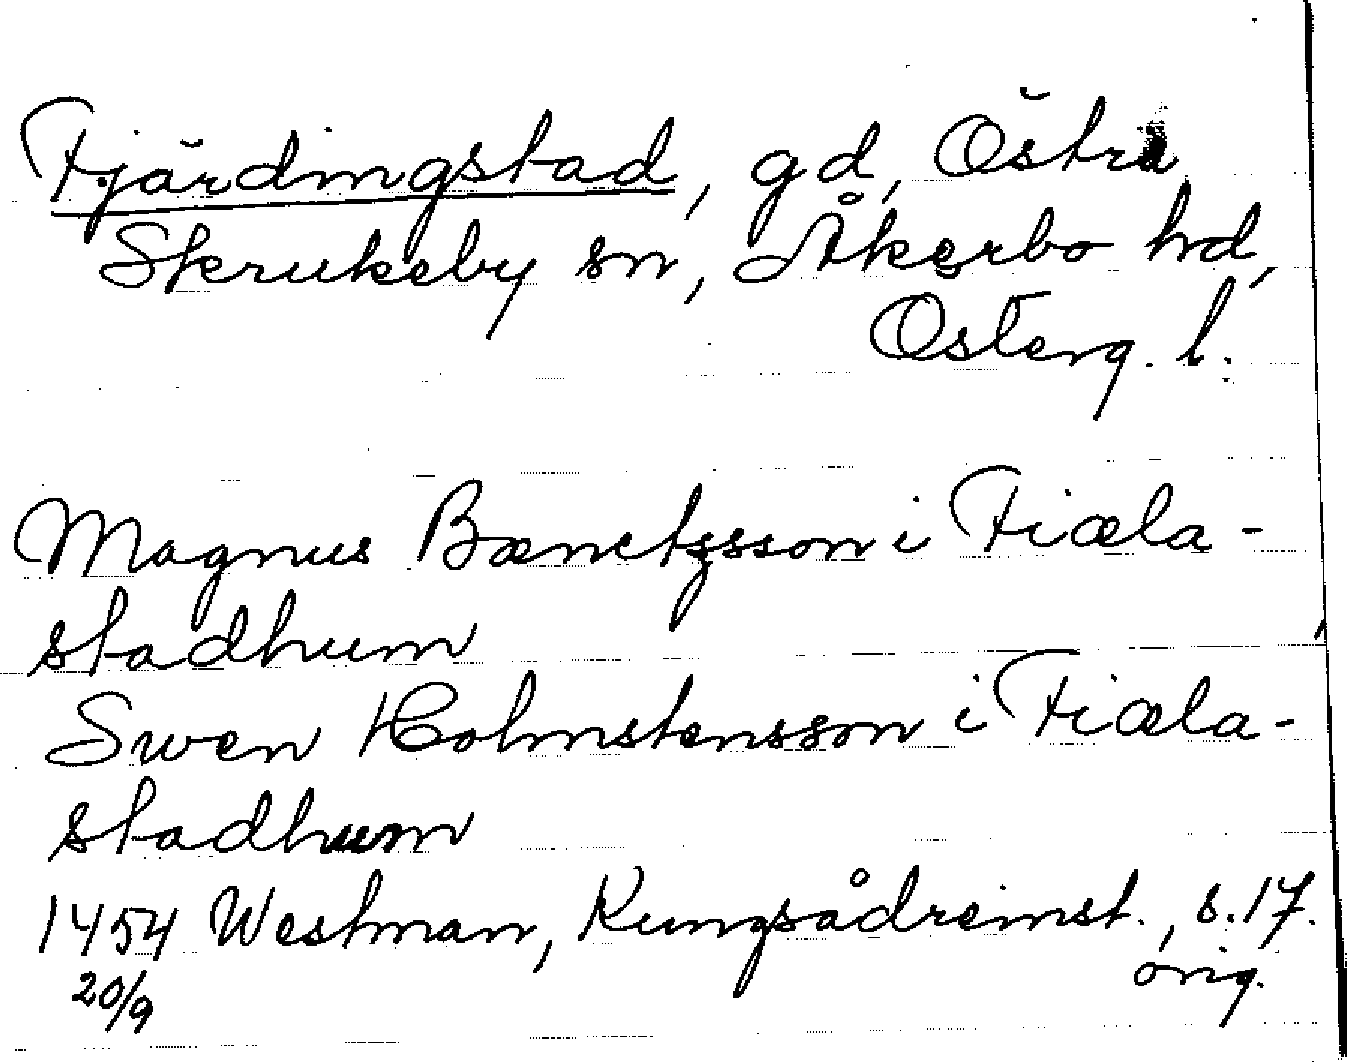 Fjärdingstad, gd, Östra
Skrukeby sn, Åkerbo hd,
Österg. l.
Magnus Bænctzsson i Fiæla-
stadhum
Swen Holmstensson i Fiæla-
stadhum
1454 Westman, Kungsådreinst., s. 17.
20/9 orig.